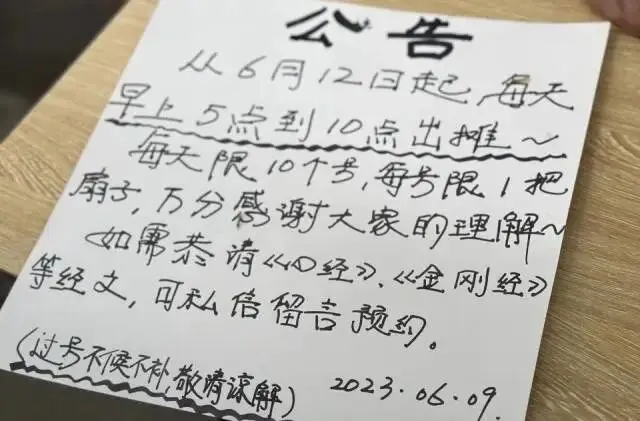 公告
从6月12日起,每天
早上5点到10点出摊~
每天限10个号,每号限1把
扇子,万分感谢大家的理解~
如需恭请《心经》、《金刚经》
等经文,可私信留言预约。
(过号不候不补,敬请谅解)
2023.06.09.